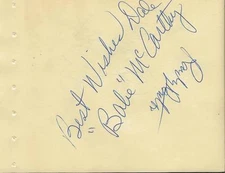 Best Wishes Dale
"Babe" McCarthy